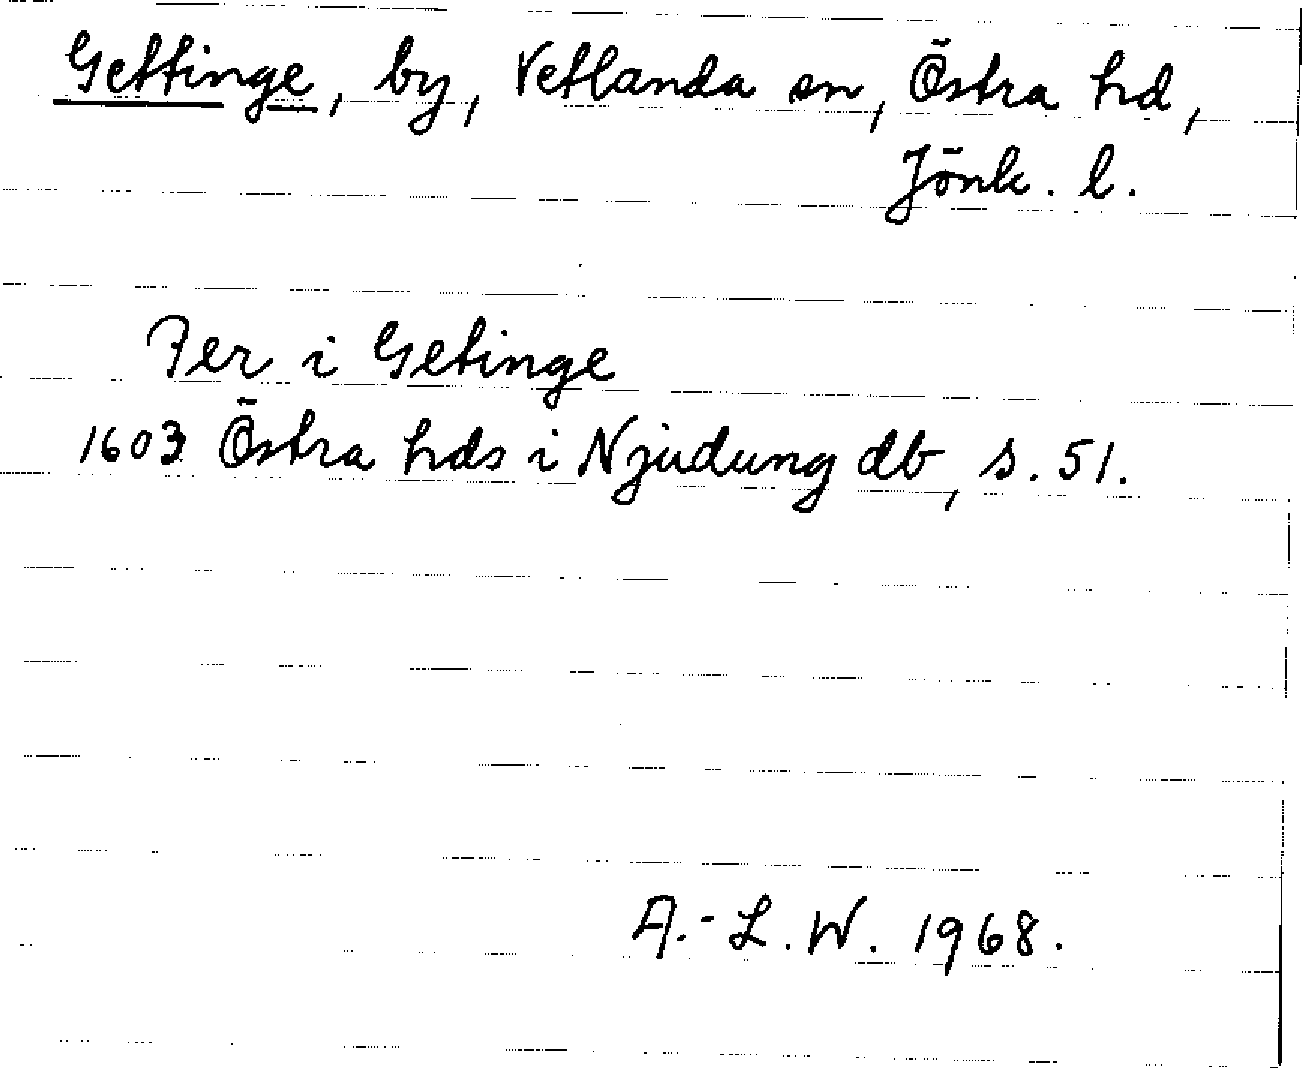 Gettinge, by, Vetlanda sn, Östra hd,
Jönk. l.
Per i Getinge
1603 Östra hds i Njudung db, s. 51.
A.-L.W. 1968.